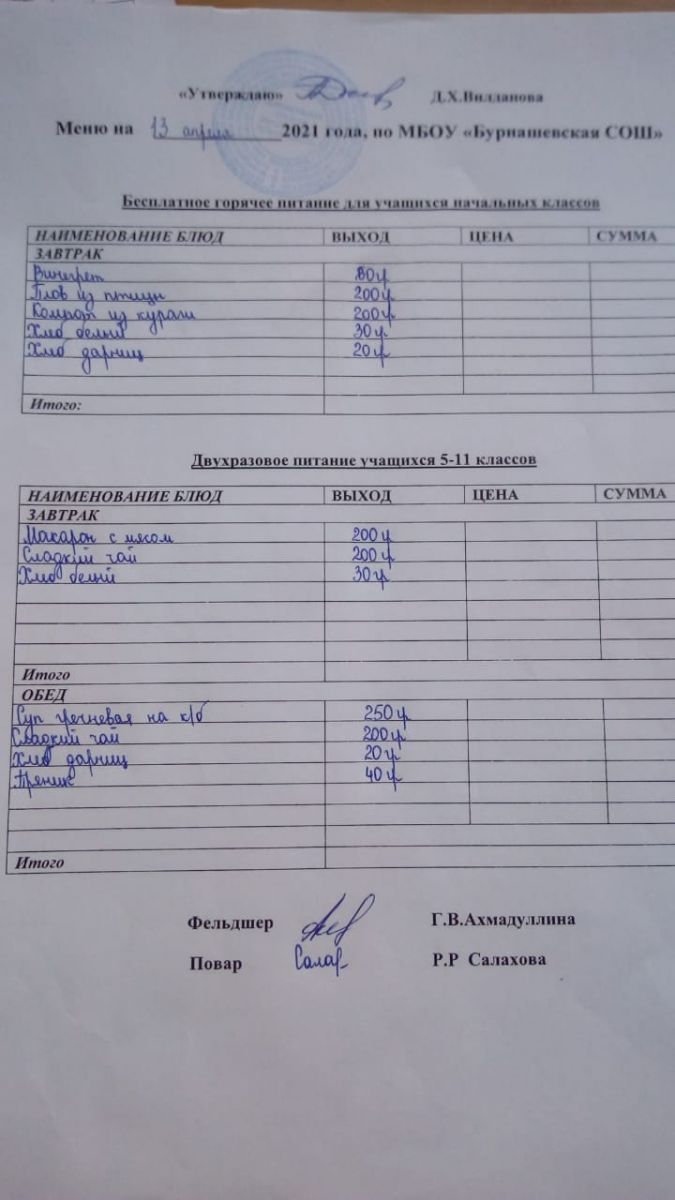 «Утверждаю» Д.Х.Вилданова
Меню на 13 апреля 2021 года, по МБОУ «Бурнашевская СОШ»
Бесплатное горячее питание для учащихся начальных классов
НАИМЕНОВАНИЕ БЛЮД ВЫХОД ЦЕНА СУММА
ЗАВТРАК
Винегрет 80г
Плов из птицы 200г
Компот из кураги 200г
Хлеб белый 30г
Хлеб дарниц 20г
Итого:
Двухразовое питание учащихся 5-11 классов
НАИМЕНОВАНИЕ БЛЮД ВЫХОД ЦЕНА СУММА
ЗАВТРАК
Макарон с мясом 200г
Сладкий чай 200г
Хлеб белый 30г
Итого
ОБЕД
Суп гречневая на к/б 250г
Сладкий чай 200г
Хлеб дарниц 20г
Пряник 40г
Итого
Фельдшер Г.В.Ахмадуллина
Повар Салах Р.Р Салахова